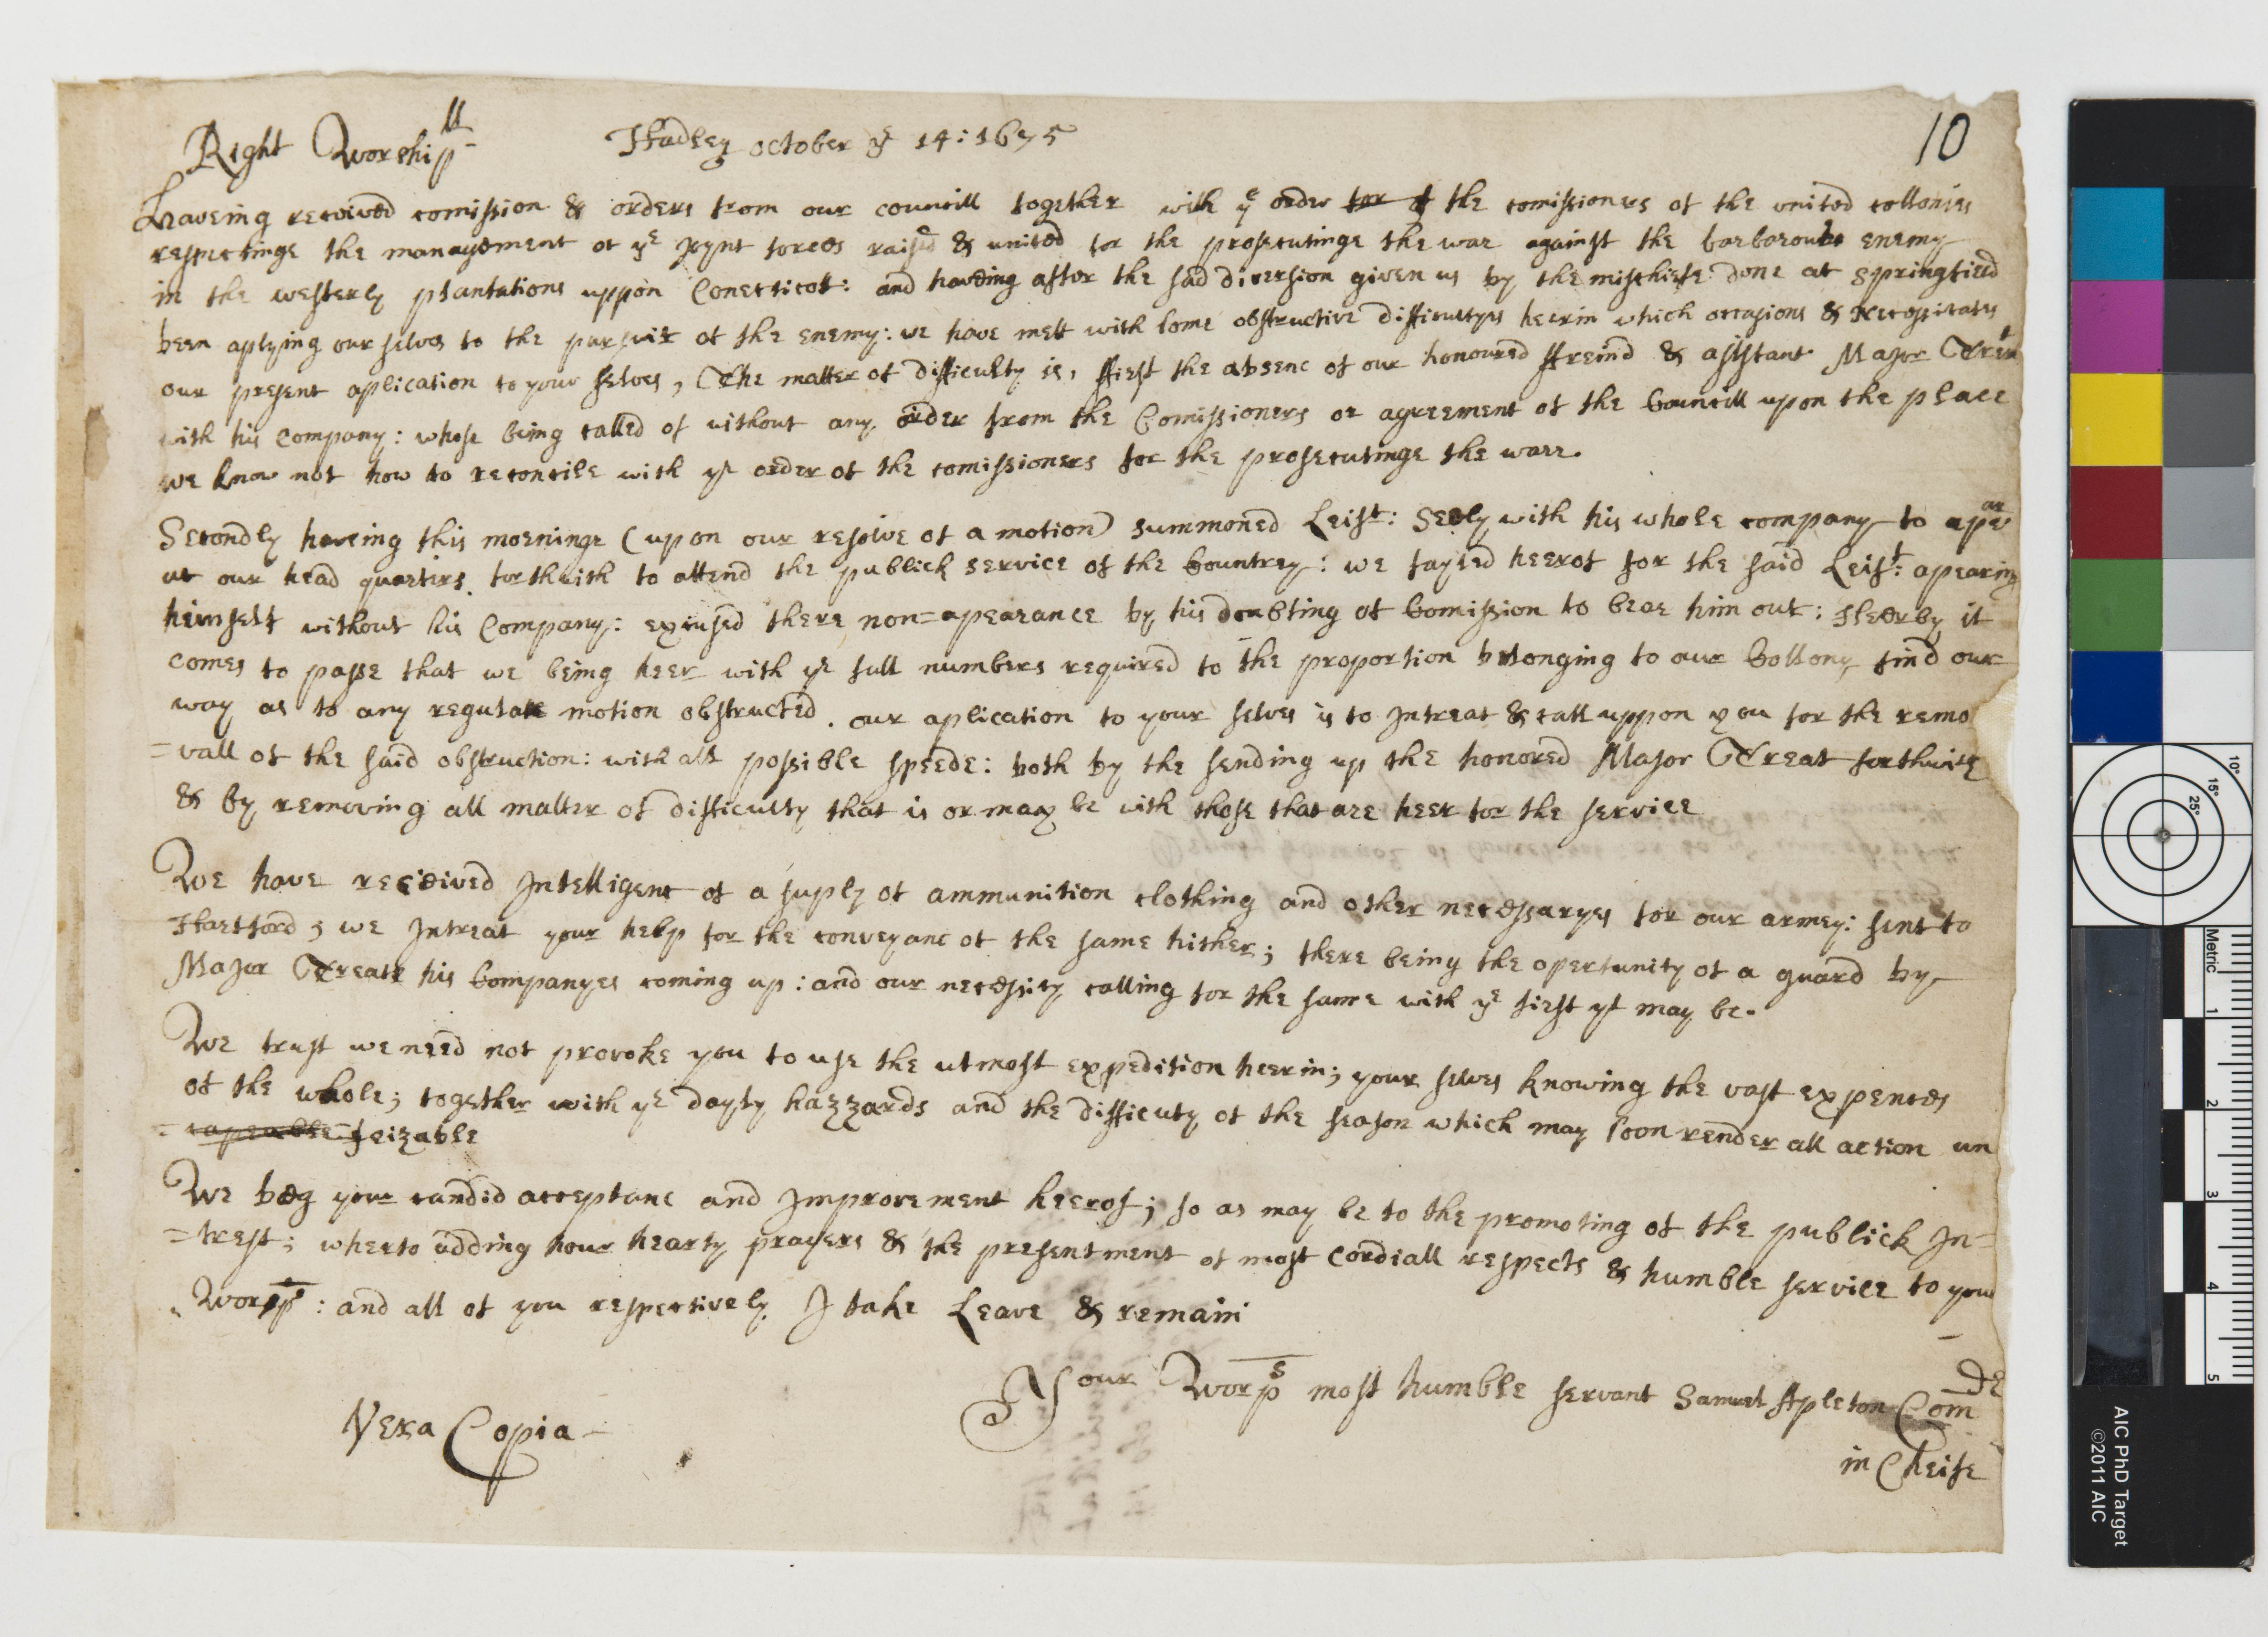 10
Right Worshipll Hadley october ye 14: 1675
Haveing received comission & orders from our councill together with ye order for of the comissioners of the united collonies
respectinge the management of ye joynt forces raised & united for the prosecutinge the war against the barbarous enemy
in the westerly plantations uppon Conecticot: and haveing after the sad diversion given us by the mischiefe done at springfield
been aplying our selves to the pursuit of the enemy: we have mett with some obstructive difficultyes heerin which occasions & necessitates
our present aplication to your selves, The matter of difficulty is, ffirst the absenc of our honoured ffreind & asistant Major Treat
with his company: whose being called of without any order from the Comissioners or agreement of the Councill upon the place
we know not how to reconcile with ye order of the comissioners for the prosecutinge the warr.
Secondly haveing this morninge (upon our resolve of a motion) summoned Leist: Seely with his whole company to apear
at our head quarters forthwith to attend the publick service of the Countrey: we fayled heerof for the said Leist: apearing
himself without his Company: excused there non=apearance by his doubting of Comission to bear him out: Heerby it
comes to passe that we being heer with ye full numbers required to the proportion belonging to our Collony find our
way as to any regular motion obstructed. our aplication to your selves is to Intreat & call uppon you for the remo
=vall of the said obstruction: with all possible speede: both by the sending up the honored Major Treat forthwith
& by removing all matter of difficulty that is or may be with those that are heer for the service
We have receeived Intelligenc of a suply of ammunition clothing and other necessaryes for our armey: sent to
Hartford; we Intreat your help for the conveyanc of the same hither; there being the opertunity of a guard by
Major Treats his Companyes coming up: and our necessity calling for the same with ye first yt may be.
We trust we need not provoke you to use the utmost expedition heerin; your selves knowing the vast expences
of the whole; together with ye dayly hazzards and the difficuty of the season which may soon render all action un
=capeable feizable
We beg your candid acceptanc and Improvement heerof; so as may be to the promoting of the publick In=
=trest; wherto adding hour hearty prayers & the presentment of most cordiall respects & humble service to your
Worps: and all of you respectively I take Leave & remain
Your Worps most humble servant Samuel Apleton Comde
in Cheife
Vera Copia
10° 15° 25°
Metric 1 2 3 4 5
AIC PhD Target
©2011 AIC